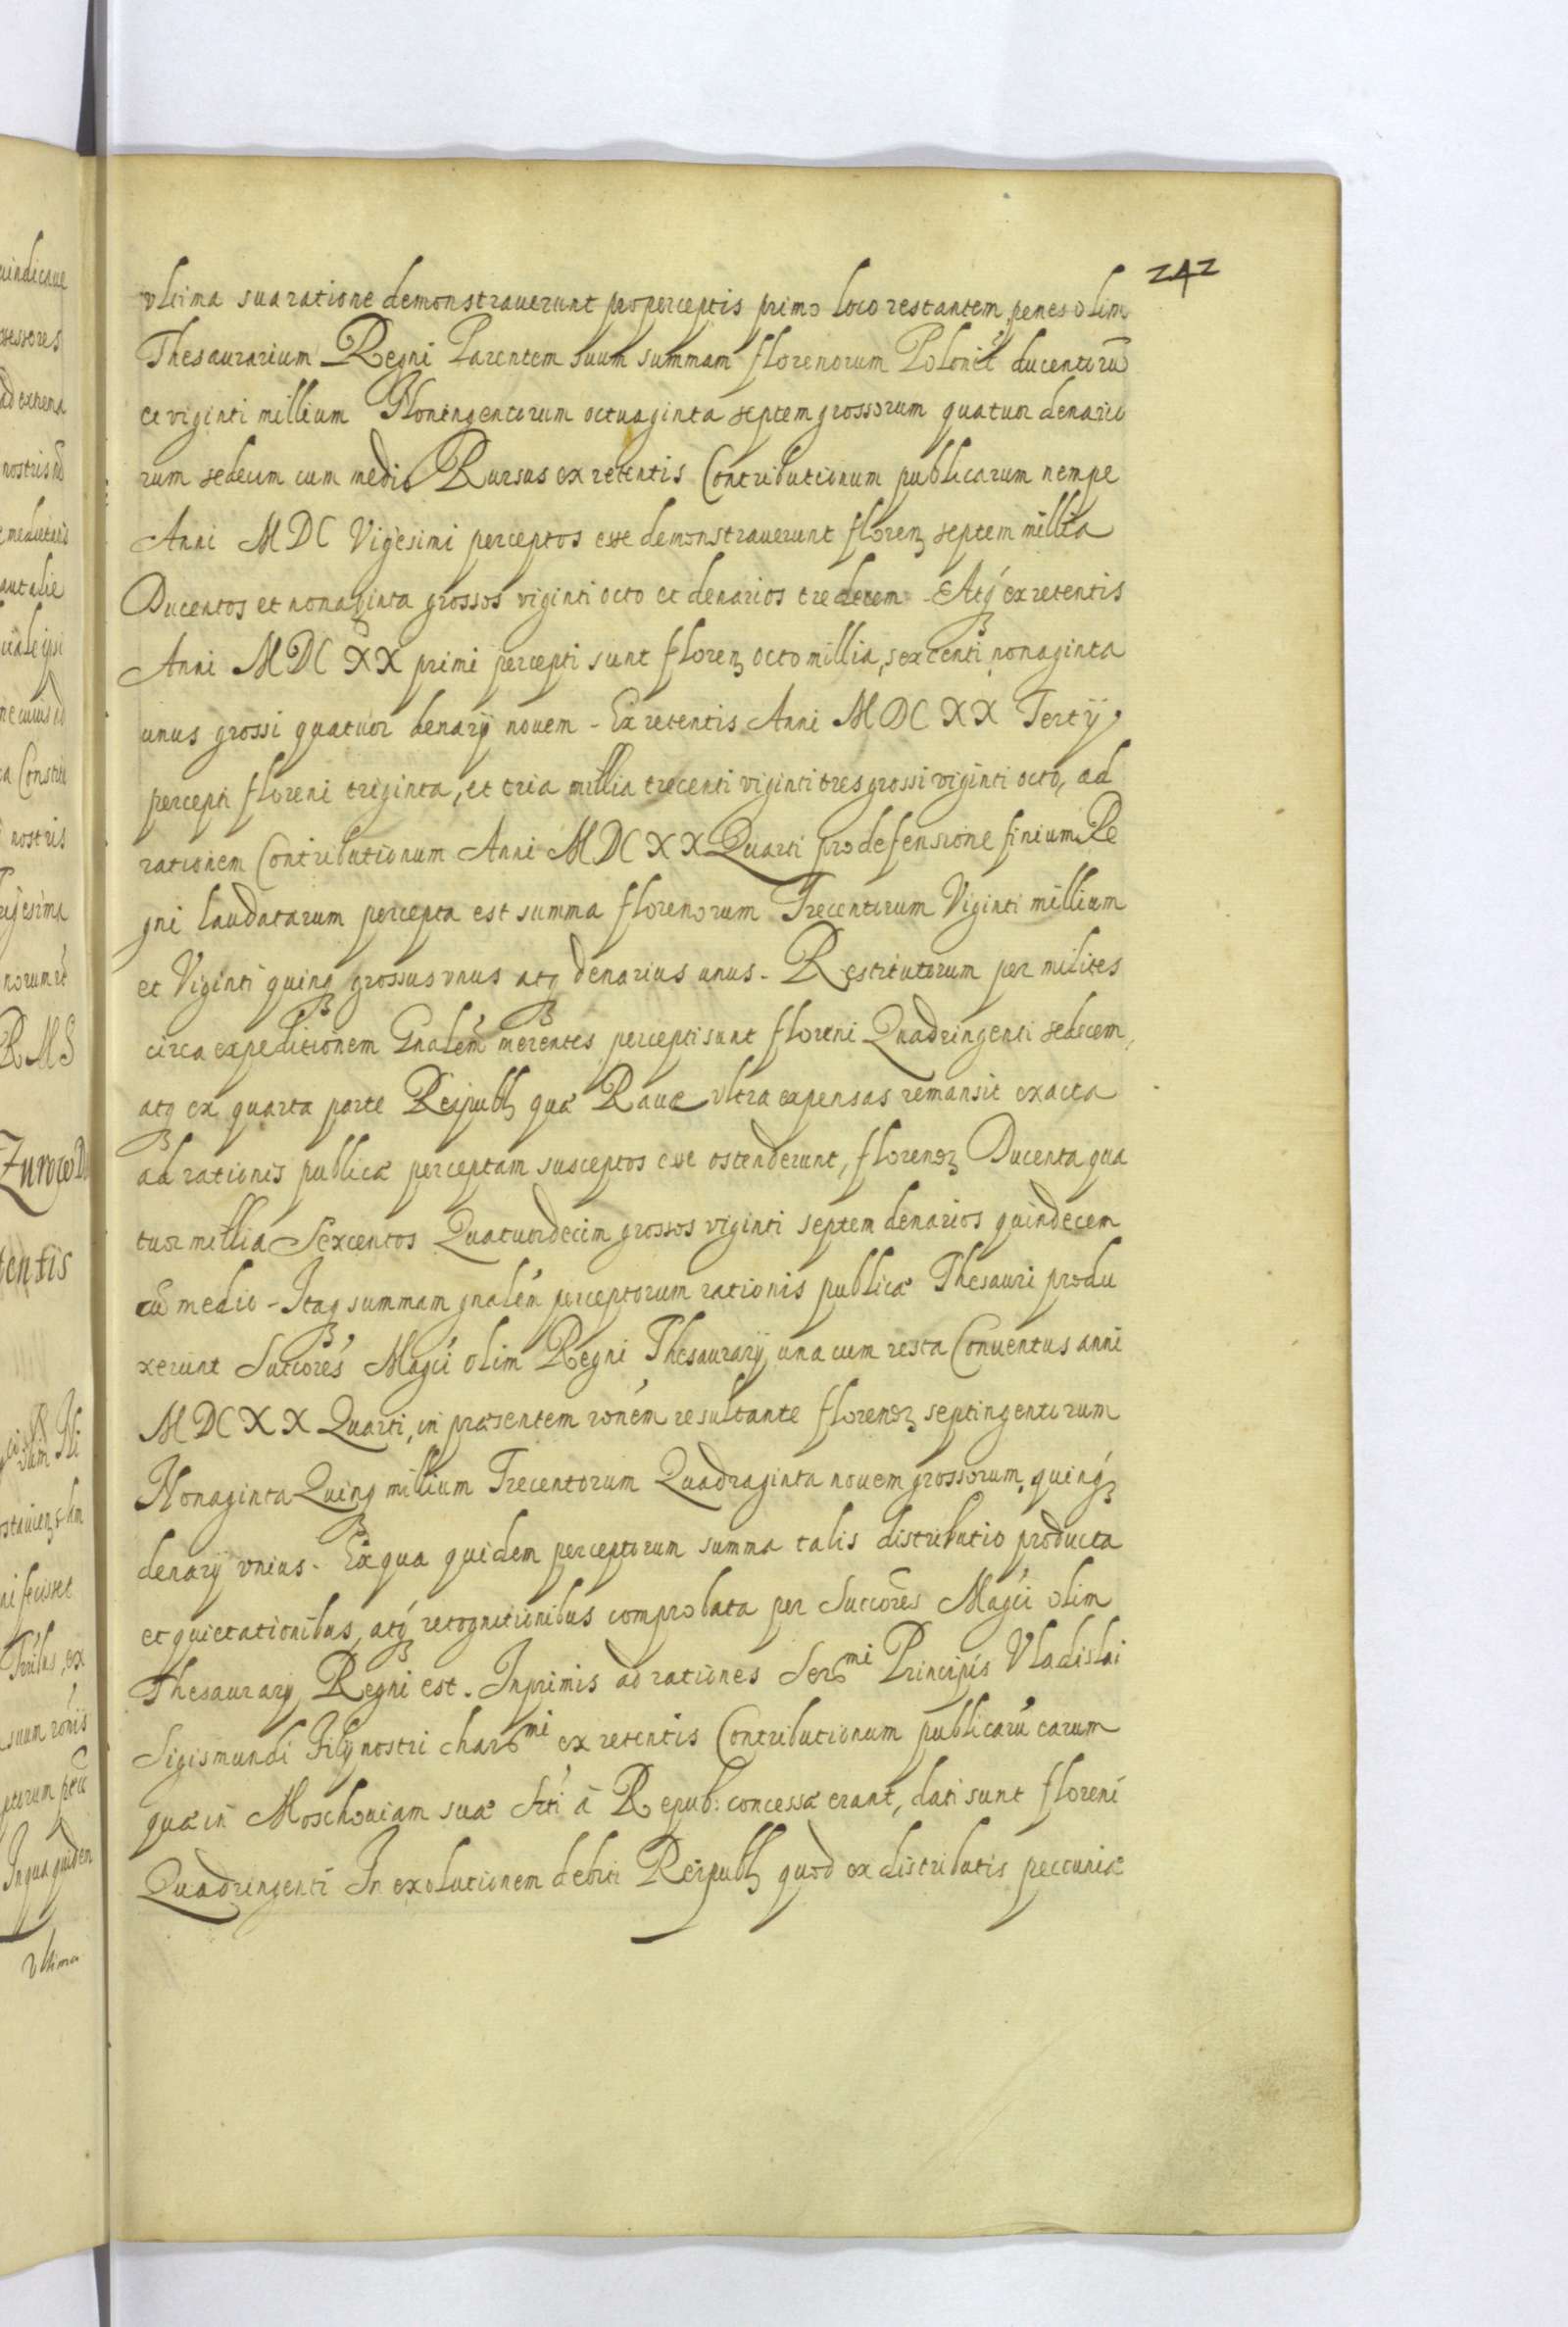 242
vltima sua ratione demonstrauerunt pro perceptis primo loco restantem, penes olim
Thesaurarium Regni Parentem suum summam florenorum Polonic̃ ducentorũ
et viginti millium Nontngentorum octuaginta septem grossorum quatuor denario
rum sedecim cum medio Rursus ex retentis Contributionum publicarum nempe
Anni MDC Vigesimi perceptos esse demonstrauerunt florenꝫ septem millia
Ducentos et nonaginta grossos viginti octo et denarios tredecem - Atqꝫ ex retentis
Anni MDC XX primi percepti sunt florenꝫ octo millia, sexcenti nonaginta
unus grossi quatuor denarij nouem - Ex retentis Anni MDC XX Tertij
percepti floreni triginta, et tria millia trecenti viginti tres grossi viginti octo, ad
rationem Contributionum Anni MDC XX Quarti pro defensione finium Re
gni laudatarum percepta est summa florenorum Trecentorum Viginti millium
et Viginti quinqꝫ grossus vnus atqꝫ denarius unus - Restitutorum per milites
circa expeditionem Gnalem̃ merentes percepti sunt floreni Quadringenti sedecem,
atqꝫ ex quarta parte Reipublꝫ quæ Rauæ vltra expensas remansit exacta
ad rationis publicæ perceptam susceptos esse ostenderunt, florenoꝝ Ducenta qua
tuor millia Sexcentos Quatuordecim grossos viginti septem denarios quindecem
cũ medio - Itaqꝫ summam gnalem̃ perceptorum rationis publicæ Thesauri produ
xerunt Succores̃ Magci̇ olim Regni Thesaurarij, una cum resta Conuentus anni
MDC XX Quarti, in præsentem ronem̃ resultante florenoꝝ septingentorum
Nonaginta Quinqꝫ millium Trecentorum Quadraginta nouem grossorum, quinqꝫ
denarij vnius - Ex qua quidem perceptorum summa talis distributio producta
et quietationibus, atqꝫ recognitionibus comprobata per Succores̃ Magci̇ olim
Thesaurarij Regni est. Inprimis ad rationes Ser͞mi Principis Vladislai
Sigismundi Filij nostri char͞mi ex retentis Contributionum publicarũ earum
quæ in Moschouiam suæ Srti̇ à Repub: concessæ erant, dati sunt floreni
Quadringenti In exolutionem debiti Reipublꝫ quod ex distributis peccuniæ